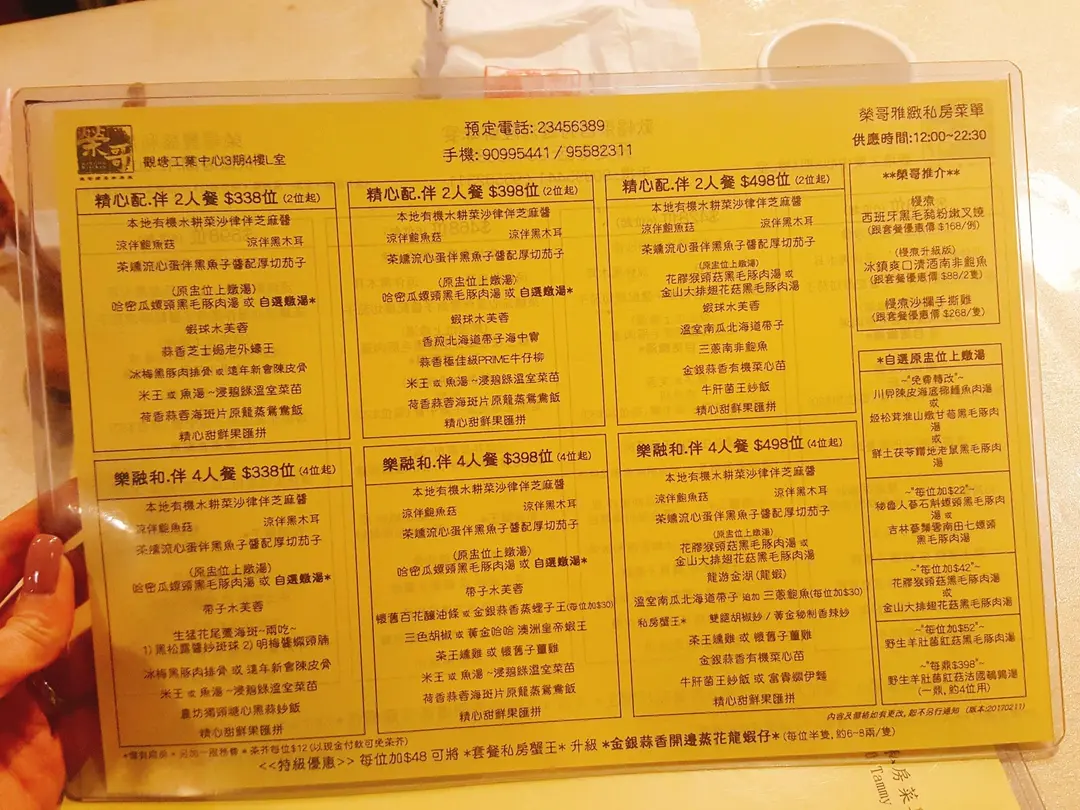 榮哥
觀塘工業中心3期4樓L室
預定電話: 23456389
手機: 90995441 / 95582311
榮哥雅緻私房菜單
供應時間:12:00~22:30
精心配.伴 2人餐 $338位 (2位起)
本地有機水耕菜沙律伴芝麻醬
涼伴鮑魚菇 涼伴黑木耳
茶燻流心蛋伴黑魚子醬配厚切茄子
(原盅位上燉湯)
哈密瓜螺頭黑毛豚肉湯 或 自選燉湯*
蝦球木芙蓉
蒜香芝士焗老外蠔王
冰梅黑豚肉排骨 或 遠年新會陳皮骨
米王 或 魚湯 ~浸翡綠溫室菜苗
荷香蒜蓉海斑片原籠蒸鴛鴦飯
精心甜鮮果匯拼
精心配.伴 2人餐 $398位 (2位起)
本地有機水耕菜沙律伴芝麻醬
涼伴鮑魚菇 涼伴黑木耳
茶燻流心蛋伴黑魚子醬配厚切茄子
(原盅位上燉湯)
哈密瓜螺頭黑毛豚肉湯 或 自選燉湯*
蝦球木芙蓉
香煎北海道帶子海中寶
蒜香極佳級PRIME牛仔柳
米王 或 魚湯 ~浸翡綠溫室菜苗
荷香蒜蓉海斑片原籠蒸鴛鴦飯
精心甜鮮果匯拼
精心配.伴 2人餐 $498位 (2位起)
本地有機水耕菜沙律伴芝麻醬
涼伴鮑魚菇 涼伴黑木耳
茶燻流心蛋伴黑魚子醬配厚切茄子
(原盅位上燉湯)
花膠猴頭菇黑毛豚肉湯 或
金山大排翅花菇黑毛豚肉湯
蝦球木芙蓉
溫室南瓜北海道帶子
三蔥南非鮑魚
金銀蒜香有機菜心苗
牛肝菌王炒飯
精心甜鮮果匯拼
**榮哥推介**
慢煮
西班牙黑毛豬粉嫩叉燒
(跟套餐優惠價 $168/例)
(慢煮升級版)
冰鎮爽口清酒南非鮑魚
(跟套餐優惠價 $88/2隻)
慢煮沙攔手撕雞
(跟套餐優惠價 $268/隻)
*自選原盅位上燉湯
~"免費轉改"~
川貝陳皮海底椰鱷魚肉湯
或
姬松茸淮山燉甘筍黑毛豚肉湯
或
鮮土茯苓糯地老鼠黑毛豚肉湯
~"每位加$22"~
秘魯人蔘石斛螺頭黑毛豚肉湯 或
吉林蔘鬚雲南田七螺頭
黑毛豚肉湯
~"每位加$42"~
花膠猴頭菇黑毛豚肉湯
或
金山大排翅花菇黑毛豚肉湯
~"每位加$52"~
野生羊肚菌紅菇黑毛豚肉湯
~"每鼎$398"~
野生羊肚菌紅菇法國鵪鶉湯
(一鼎, 約4位用)
樂融和.伴 4人餐 $338位 (4位起)
本地有機水耕菜沙律伴芝麻醬
涼伴鮑魚菇 涼伴黑木耳
茶燻流心蛋伴黑魚子醬配厚切茄子
(原盅位上燉湯)
哈密瓜螺頭黑毛豚肉湯 或 自選燉湯*
帶子木芙蓉
生猛花尾躉海斑~兩吃~
1) 黑松露醬炒斑球 2) 明梅醬焗頭腩
冰梅黑豚肉排骨 或 遠年新會陳皮骨
米王 或 魚湯 ~浸翡綠溫室菜苗
農坊獨頭糖心黑蒜炒飯
精心甜鮮果匯拼
樂融和.伴 4人餐 $398位 (4位起)
本地有機水耕菜沙律伴芝麻醬
涼伴鮑魚菇 涼伴黑木耳
茶燻流心蛋伴黑魚子醬配厚切茄子
(原盅位上燉湯)
哈密瓜螺頭黑毛豚肉湯 或 自選燉湯*
帶子木芙蓉
懷舊百花釀油條 或 金銀蒜香蒸蟶子王 (每位加$30)
三色胡椒 或 黃金哈哈 澳洲皇帝蝦王
茶王燻雞 或 懷舊子薑雞
米王 或 魚湯 ~浸翡綠溫室菜苗
荷香蒜蓉海斑片原籠蒸鴛鴦飯
精心甜鮮果匯拼
樂融和.伴 4人餐 $498位 (4位起)
本地有機水耕菜沙律伴芝麻醬
涼伴鮑魚菇 涼伴黑木耳
茶燻流心蛋伴黑魚子醬配厚切茄子
(原盅位上燉湯)
花膠猴頭菇黑毛豚肉湯 或
金山大排翅花菇黑毛豚肉湯
龍游金湖 (龍蝦)
溫室南瓜北海道帶子 追加 三蔥鮑魚(每位加$30)
私房蟹王* 雙蹤胡椒炒 / 黃金秘制香辣炒
茶王燻雞 或 懷舊子薑雞
金銀蒜香有機菜心苗
牛肝菌王炒飯 或 富貴撈伊麵
精心甜鮮果匯拼
內容及價格如有更改, 恕不另行通知 (版本:20170211)
另加一服務費 * 茶芥每位$12 (以現金付款可免茶芥)
<<特級優惠>> 每位加$48 可將 *套餐私房蟹王* 升級 *金銀蒜香開邊蒸花龍蝦仔* (每位半隻, 約6-8兩/隻)
房菜
Tammy